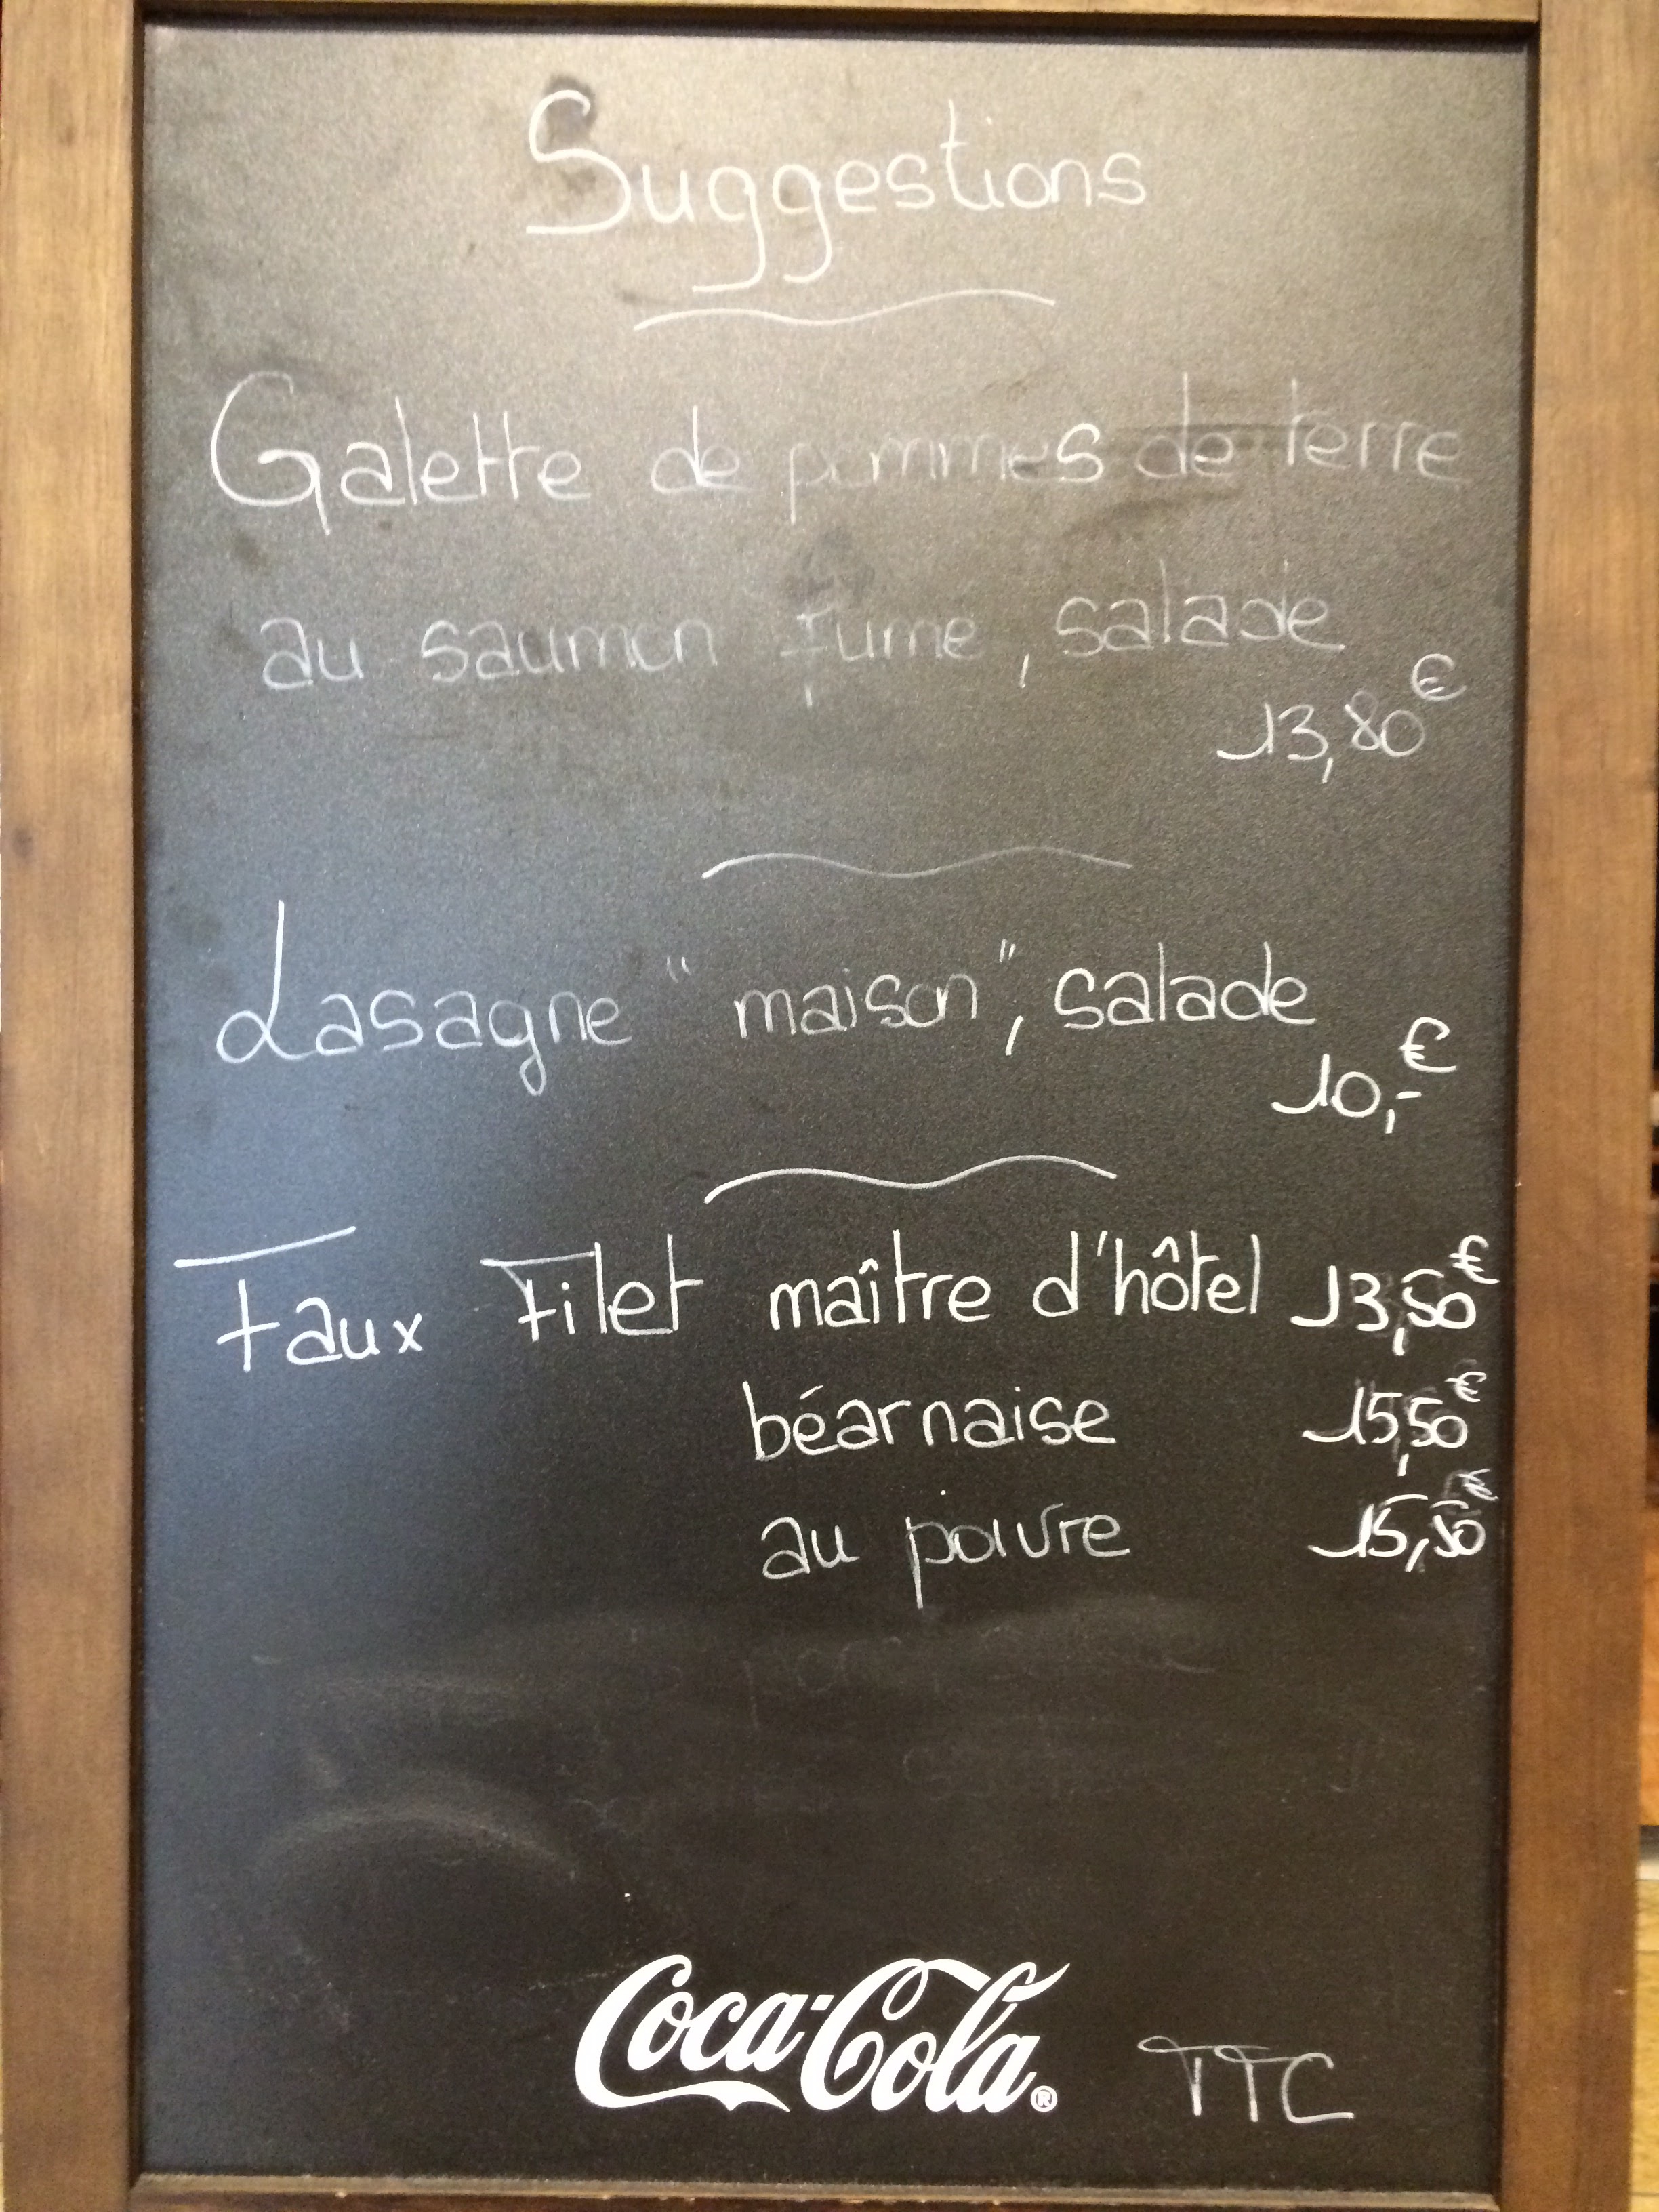 Suggestions
Galette de pommes de terre
au saumon fume, salade
13,80€
Lasagne "maison", salade
10,-€
Faux Filet maître d'hôtel 13,50€
béarnaise 15,50€
au poivre 15,50€
Coca-Cola®
TTC